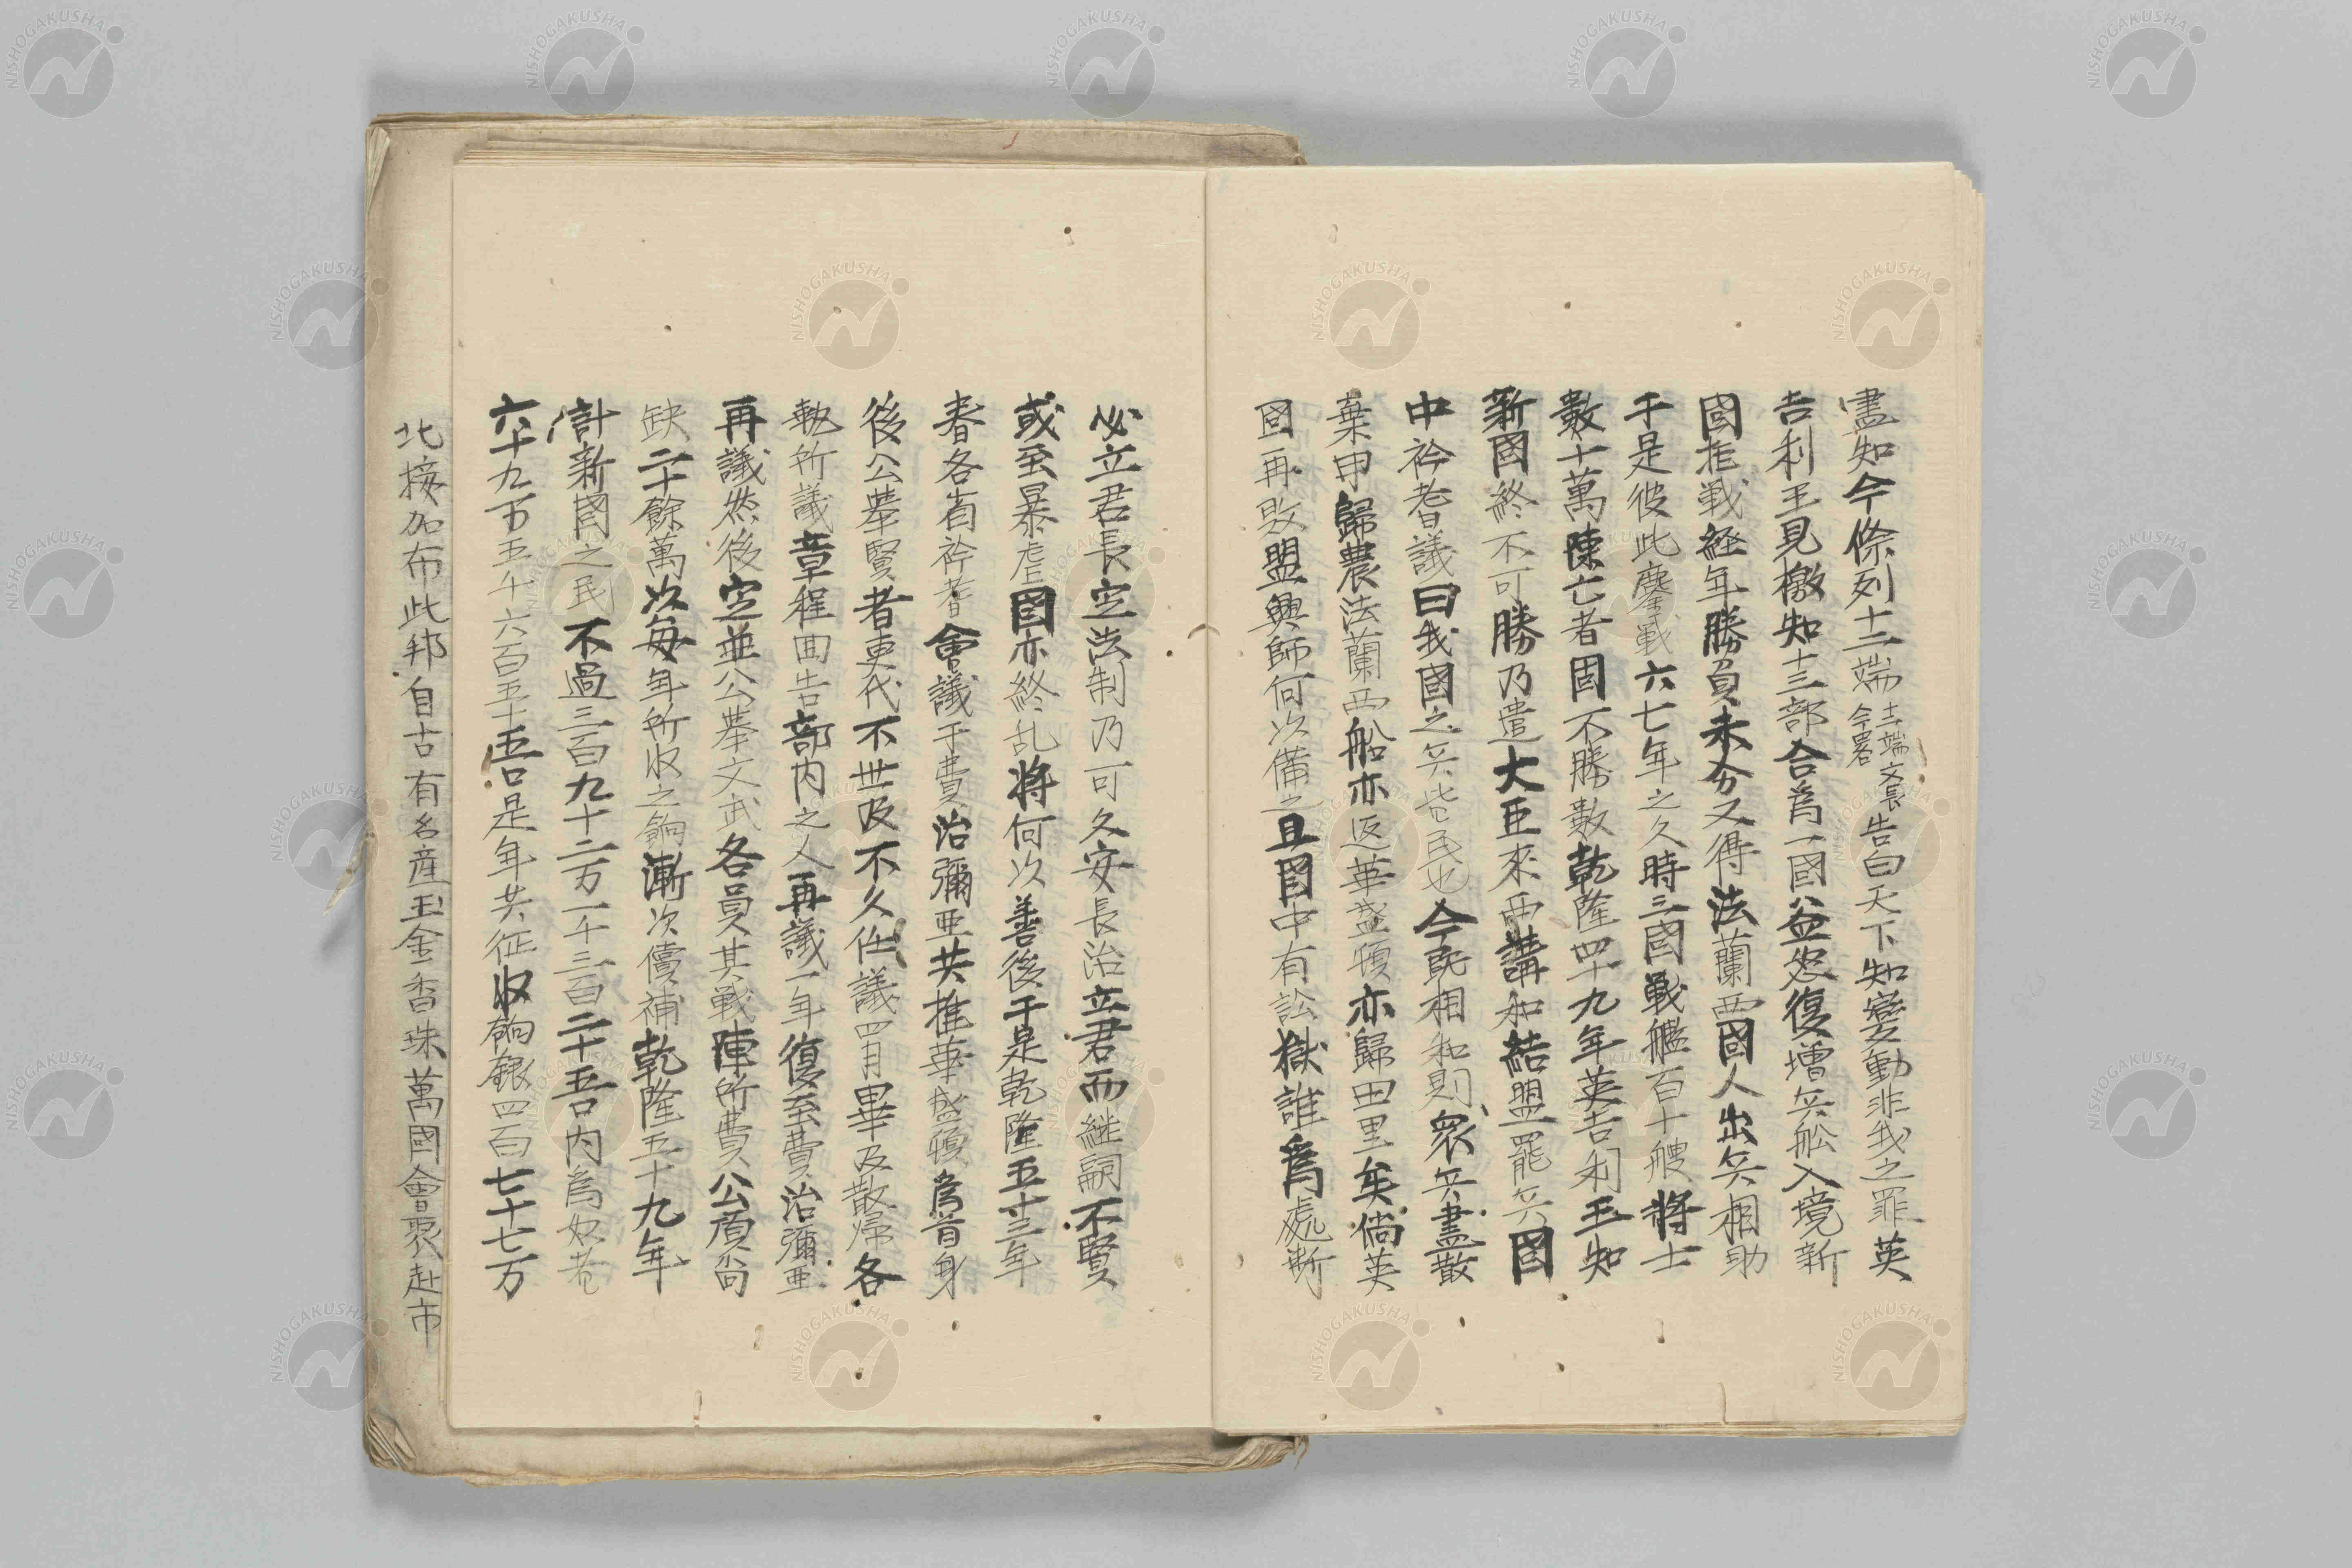 盡知今條列十二端十二端文長今畧告白天下知變動非我之罪英
吉利王見檄知十三部合為一國益怒復增兵舩入境新
國拒戦経年勝負未分又得法蘭西國人出兵相助
于是彼此鏖戦六七年之久時三國戦艦百十艘將士
數十萬陳亡者固不勝數乾隆四十九年英吉利王知
新國終不可勝乃遣大臣來西講和結盟罷兵國
中衿耆議曰我國之兵皆民也今既相和則衆兵盡散
棄甲歸農法蘭西船亦返華盛頓亦歸田里矣倘英
國再敗盟興師何次備之且國中有訟獄誰為處断
必立君長定法制乃可久安長治立君而継嗣不賢
或至暴虐國亦終乱將何次善後于是乾隆五十三年
春各省衿耆會議于費治彌亜共推華盛頓為首身
後公举賢者更代不世及不久任議四月畢及散帰各
執所議章程回告部内之人再議一年復至費治彌亜
再議然後定並公举文武各員其戦陣所費公項尚
缺二十餘萬次每年所收之餉漸次償補乾隆五十九年
計新國之民不過三百九十二万一千三百二十五口内為奴者
六十九万五千六百五十五口是年共征收餉銀四百七十七万
北接加布此邦自古有名産玉金香珠萬國會聚赴市
NISHOGAKUSHA